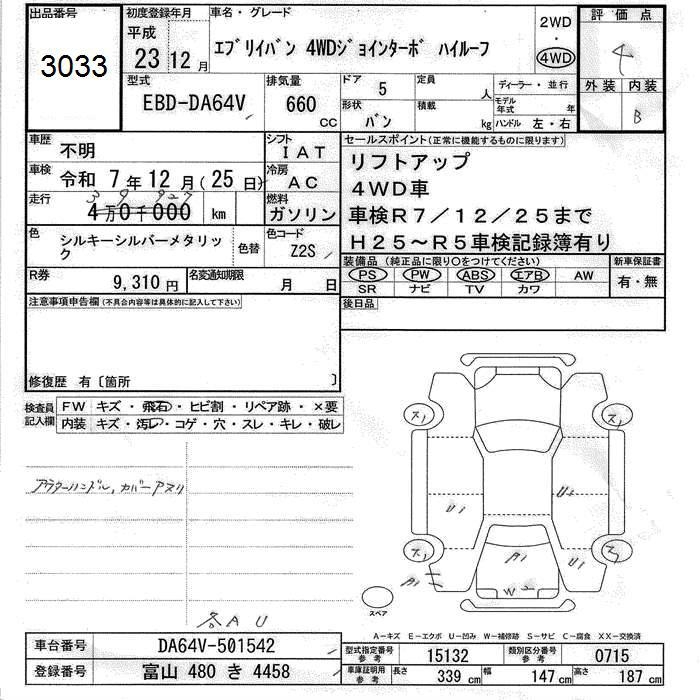 出品番号
3033
初度登録年月
平成
23 12 月
車名・グレード
ｴﾌﾞﾘｲﾊﾞﾝ 4WDｼﾞｮｲﾝﾀｰﾎﾞ ﾊｲﾙｰﾌ
2WD
・
4WD
評価点
4
外装 内装
B
型式
EBD-DA64V
排気量
660
cc
ドア
5
定員
人
形状
ﾊﾞﾝ
積載
kg
ディーラー・並行
モデル年式
年
ハンドル 左・右
車歴
不明
シフト
IAT
車検
令和 7 年 12 月 ( 25 日)
冷房
AC
走行
39,927
4万0千000 km
燃料
ガソリン
色
シルキーシルバーメタリック
色替
色コード
Z2S
R券
9,310 円
名変通知期限
月 日
セールスポイント(正常に機能するものに限ります)
リフトアップ
4WD車
車検R7/12/25まで
H25～R5車検記録簿有り
装備品(純正品に限り○をつけてください)
PS PW ABS エアB AW
SR ナビ TV カワ
新車保証書
有・無
後日品
注意事項申告欄(不具合内容等は具体的に記入して下さい)
修復歴 有〔箇所 〕
検査員記入欄
FW キズ・飛石・ヒビ割・リペア跡・×要
内装 キズ・汚レ・コゲ・穴・スレ・キレ・破レ
各AU
U1
U1
A1
U1
A1
W2
スペア
A－キズ E－エクボ U－凹み W－補修跡 S－サビ C－腐食 XX－交換済
車台番号
DA64V-501542
登録番号
富山 480 き 4458
型式指定番号
参考
15132
類別区分番号
参考
0715
車庫証明用
参考
長さ
339 cm
幅
147 cm
高さ
187 cm